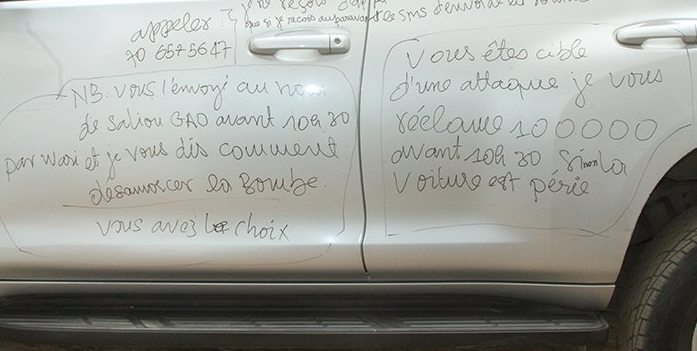 appeler
70 657 5647
je reçois
que si je reçois auparavant le SMS d'envoi de la somme
NB. Vous l'envoyé au nom
de Saliou GAO avant 10h30
par Wari et je vous dis comment
désamorcer la Bombe.
vous avez le choix
Vous êtes cible
d'une attaque je vous
réclame 100000
avant 10h30 Sinon la
Voiture est périe